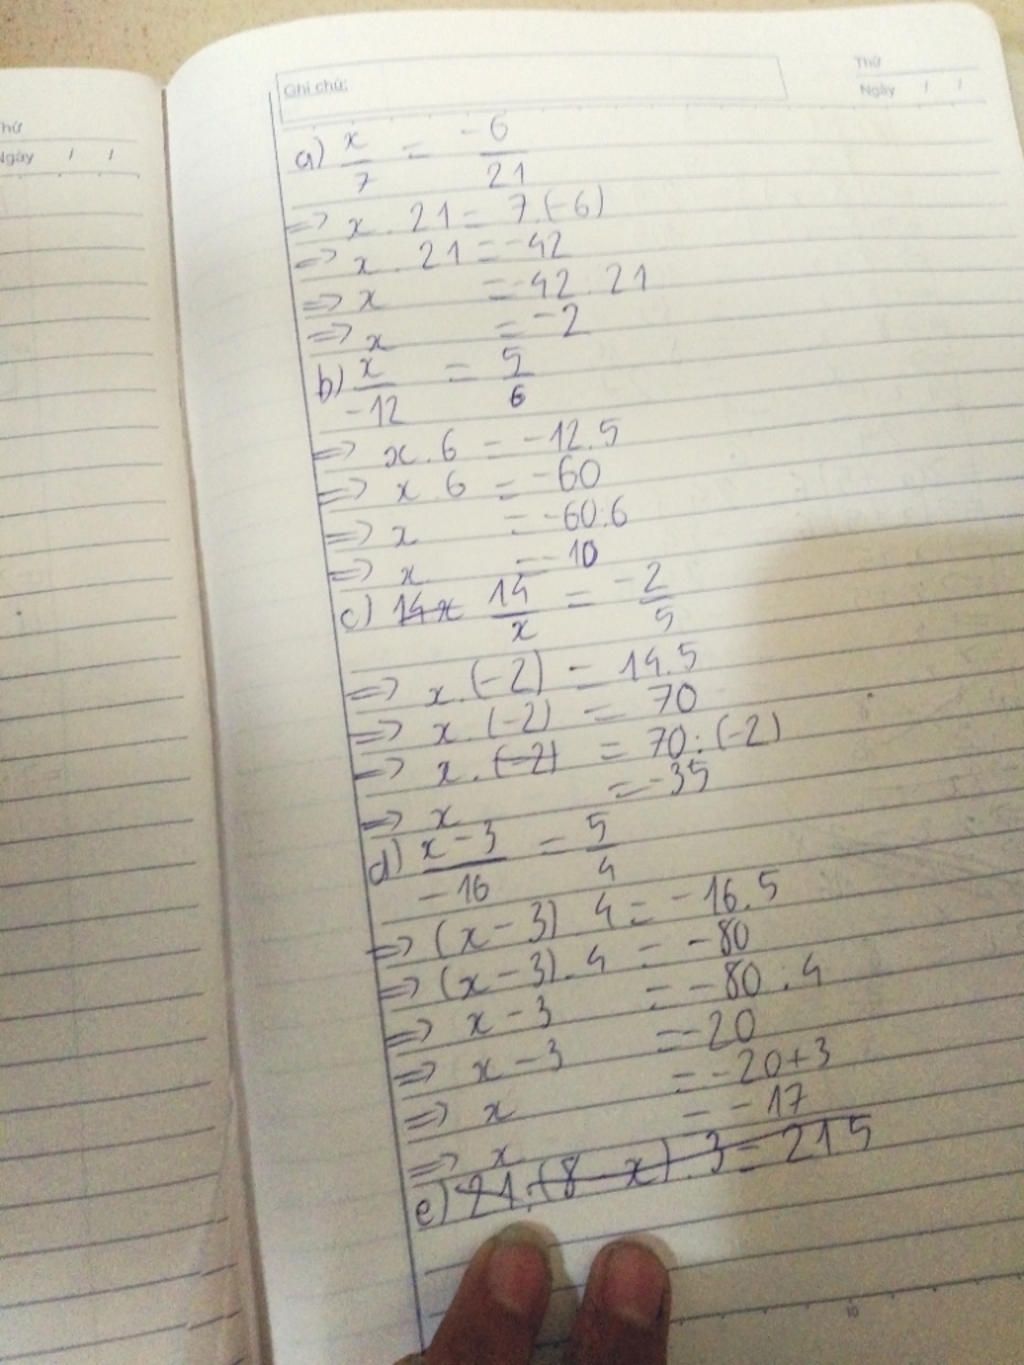 Thứ
Ngày / /
Ghi chú:
Thứ
Ngày / /
a) x/7 = -6/21
=> x . 21 = 7.(-6)
=> x . 21 = -42
=> x = -42 : 21
=> x = -2
b) x/-12 = 5/6
=> x . 6 = -12.5
=> x . 6 = -60
=> x = -60:6
=> x = -10
c) 14x 14/x = -2/5
=> x.(-2) = 14.5
=> x.(-2) = 70
=> x.(-2) = 70:(-2)
=> x = -35
d) x-3/-16 = 5/4
=> (x-3) 4 = -16.5
=> (x-3).4 = -80
=> x-3 = -80:4
=> x-3 = -20
=> x = -20+3
=> x = -17
e) 21.(8-x).3=215
10